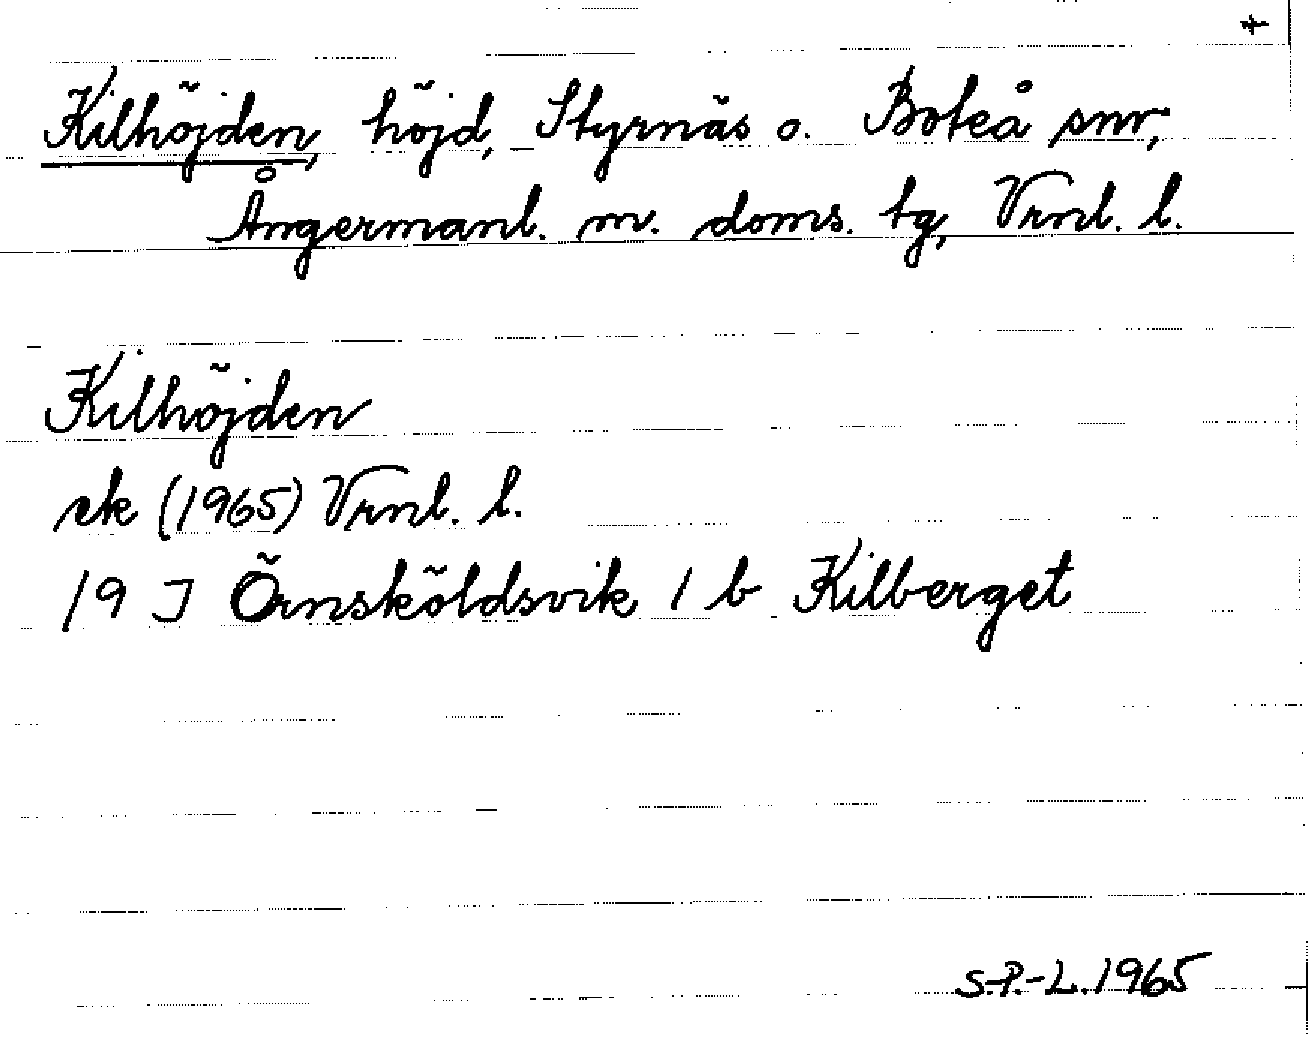 Kilhöjden, höjd, Styrnäs o. Boteå snr,
Ångermanl. m. doms. tg, Vrnl. l.
Kilhöjden
ek (1965) Vrnl. l.
19 J Örnsköldsvik 1 b Kilberget
S.P.-L. 1965